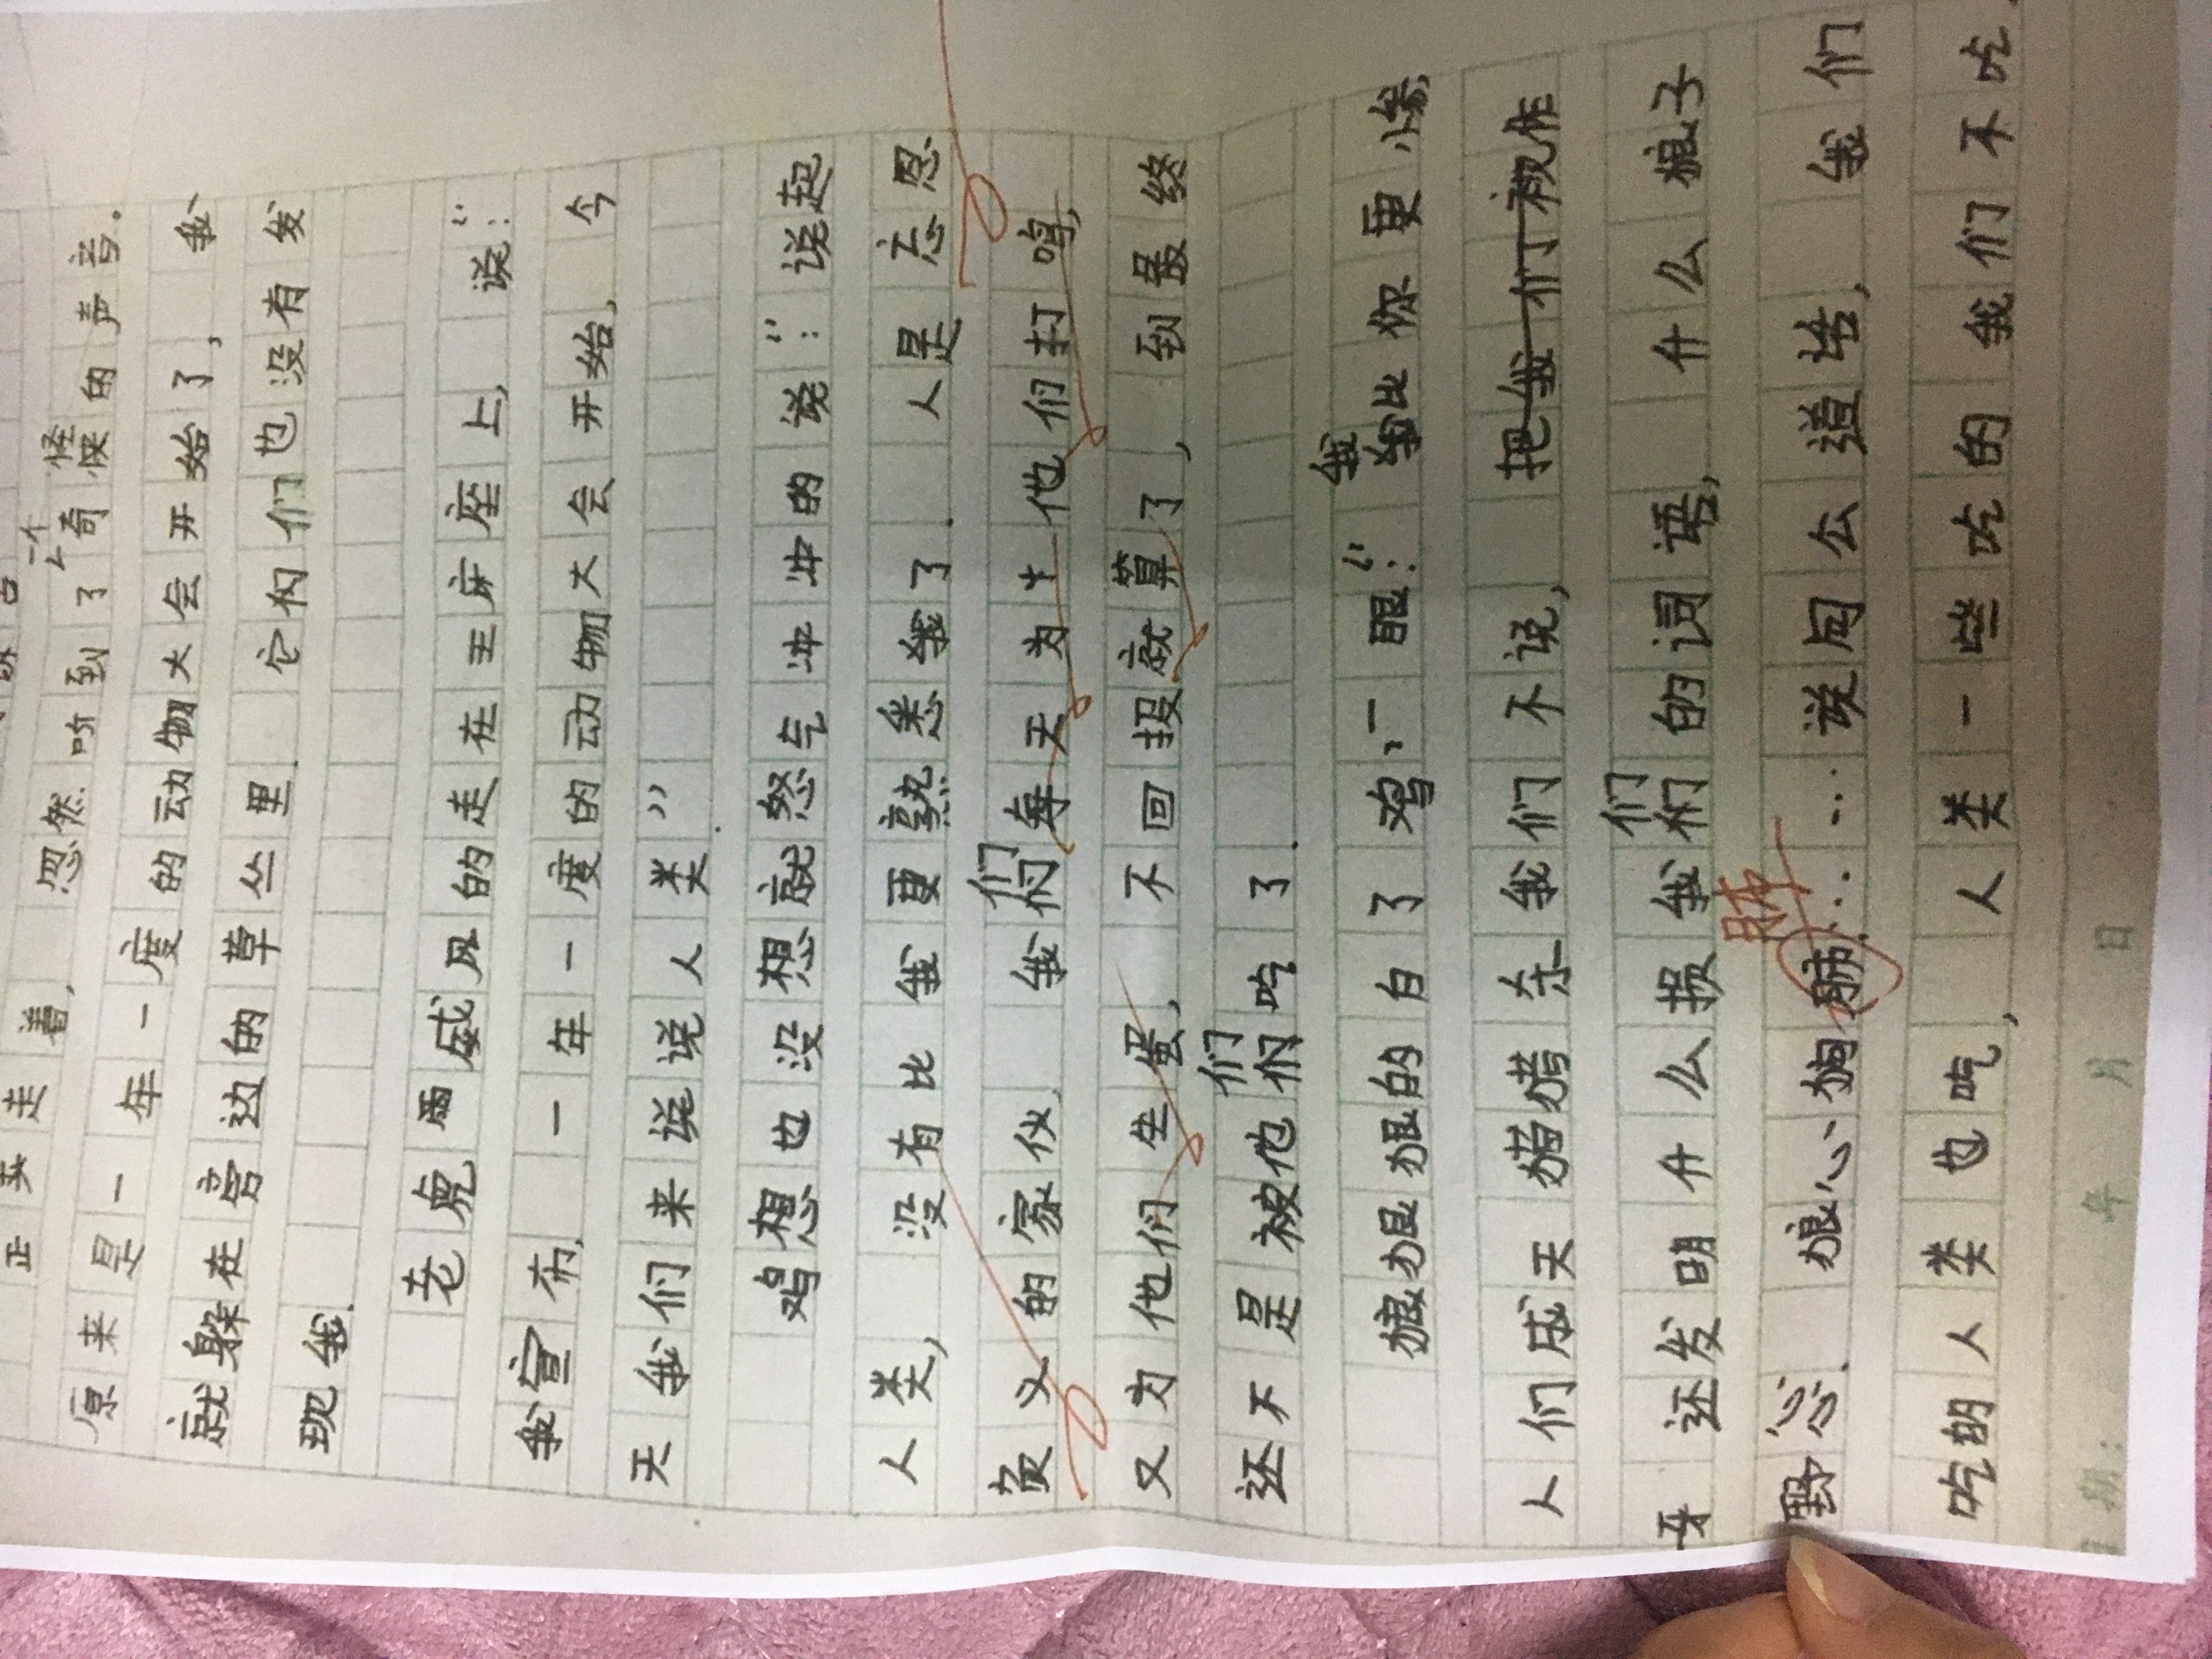 正卖走着，忽然吩到了一个奇怪的声音.
原来是一年一度的动物大会开始了，我
就躲在旁边的草丛里.它们也没有发
现我.
老虎威风的走在王座上，说：“
我宣布，一年一度的动物大会开始，今
天我们来说说人类”.
鸡想也没想就怒气冲冲的说：“说起
人类，没有比我更熟悉了.人是忘恩
负义的家伙.我们每天为他们打鸣，
又为他们生蛋，不回报就算了，到最终
还不是被他们吃了.
狼狠狠的白了鸡一眼：“我比你更惨，
人们成天猎杀我们不说，把我们视作
还发明什么损我们的词语，什么狼子
野心.狼心狗肺……说回公道话，我们
吃的人类也吃，人类一些吃的我们不吃.
年 月 日